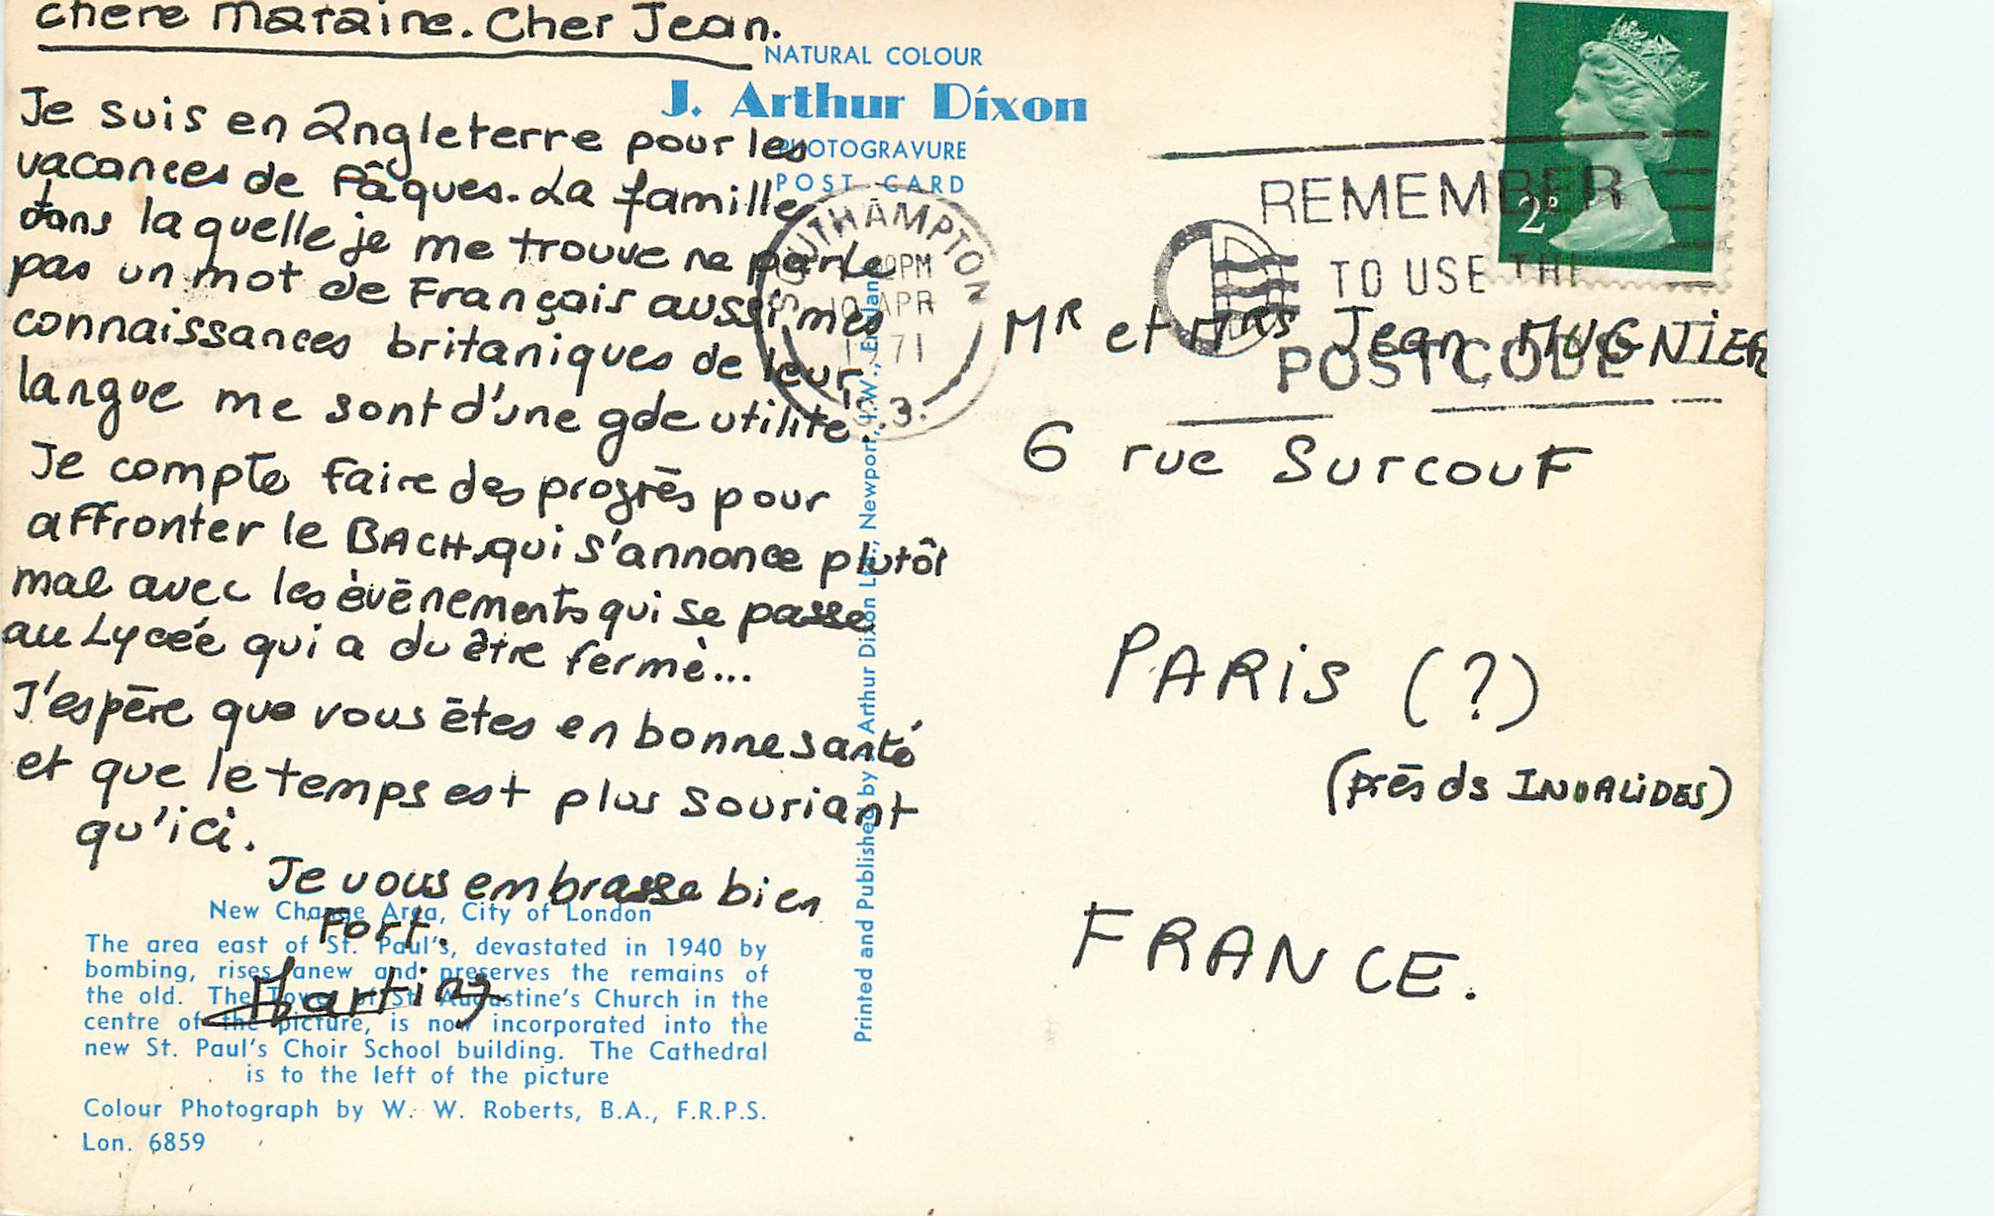 chère Maraine. Cher Jean.
Je suis en Angleterre pour les
vacances de Pâques. La famille
dans laquelle je me trouve ne parle
pas un mot de Français aussi mes
connaissances britaniques de leur
langue me sont d'une gde utilité.
Je compte faire des progrès pour
affronter le BACH, qui s'annonce plutôt
mal avec les évènements qui se passe
au Lycée qui a du être fermé...
J'espère que vous êtes en bonne santé
et que le temps est plus souriant
qu'ici.
Je vous embrasse bien
Fort.
Martine
NATURAL COLOUR
J. Arthur Dixon
PHOTOGRAVURE
POST CARD
SOUTHAMPTON
PM
10 APR
1971
REMEMBER
TO USE THE
POSTCODE
2P
Mr et Mrs Jean MUGNIER
6 rue Surcouf
PARIS (?)
(près ds INVALIDES)
FRANCE.
Printed and Published by J. Arthur Dixon Ltd., Newport, I.W., England
New Change Area, City of London
The area east of St. Paul's, devastated in 1940 by
bombing, rises anew and preserves the remains of
the old. The Tower of St. Augustine's Church in the
centre of the picture, is now incorporated into the
new St. Paul's Choir School building. The Cathedral
is to the left of the picture
Colour Photograph by W. W. Roberts, B.A., F.R.P.S.
Lon. 6859